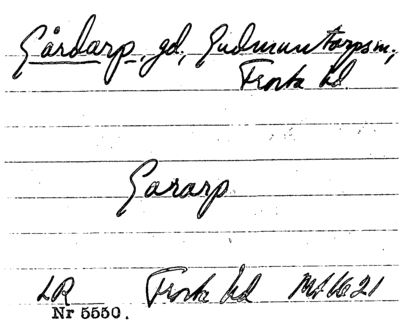 Gårdarp, gd, Gudmuntorps sn,
Frosta hd
Gararp
LR Frosta hd 1621
Nr 5550.